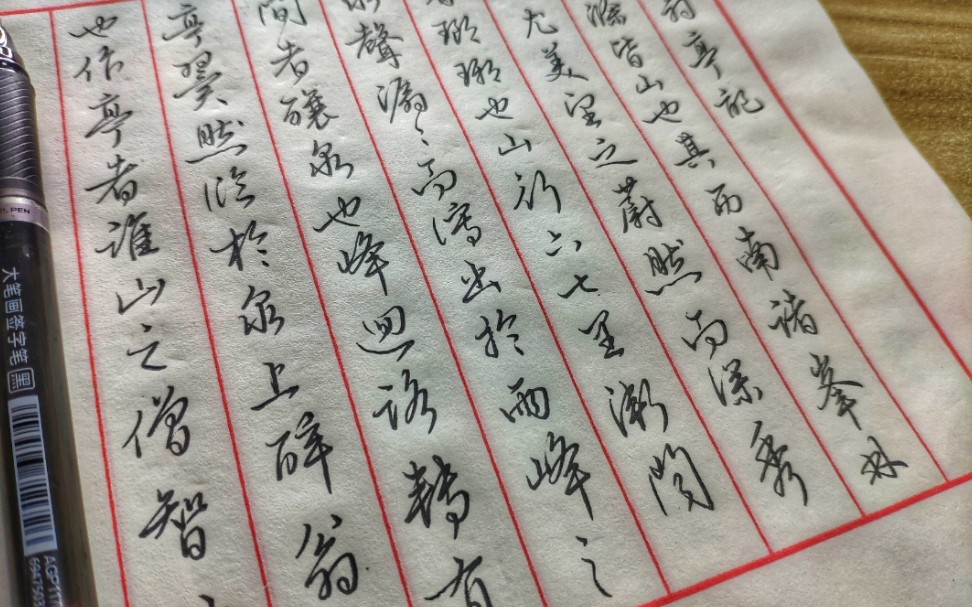 翁亭記
滁皆山也其西南諸峯林
尤美望之蔚然而深秀
瑯琊也山行六七里漸聞
水聲潺〻而瀉出於兩峰之
間者釀泉也峰迴路轉有
亭翼然臨於泉上醉翁
也作亭者誰山之僧智
PEN
大笔画签字笔 黑